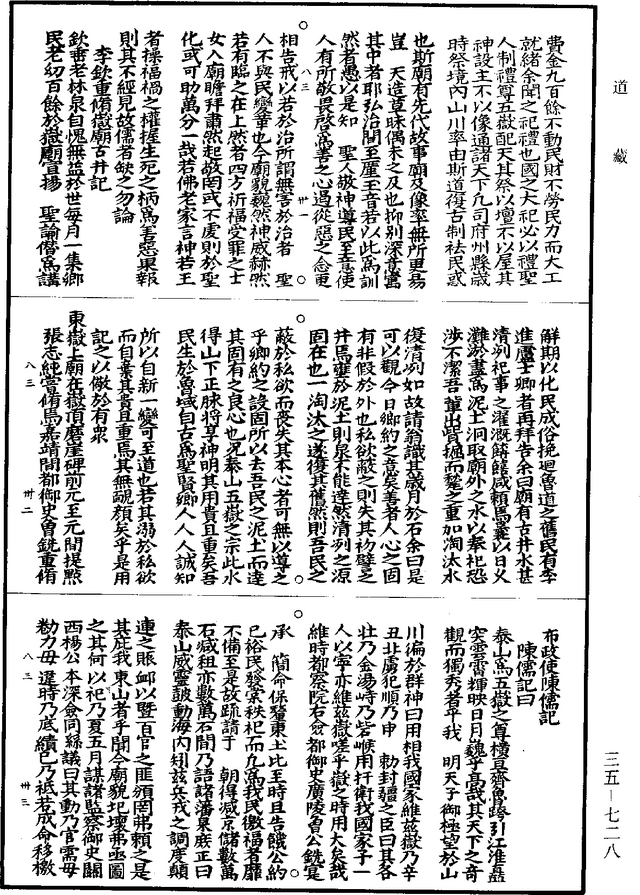 道藏
費金九百餘不動民財不勞民力而大工
就緒余聞之祀禮也國之大祀必以禮聖
人制禮尊五嶽配天其祭以壇不以屋其
神設主不以像通諸天下凡司府州縣歲
時祭境內山川率由斯道復古制祛民惑
也斯廟有先代故事廟及像率無所更易
豈天造草昧偶未之及也抑別深意寓
其中者耶弘治間至厪王音若以此為訓
然者愚以是知聖人敬神導民至意使
人有所敬畏啓為善之心遏從惡之念更
八三
卅一
相告戒以若於治所謂無害於治者聖
人不與民變革也今廟貌巍然神威赫然
若有臨之在上然者四方祈福受罪之士
女入廟瞻拜肅然起敬罔或不虔則於聖
化或可助萬分一哉若佛老家言神若王
者操福禍之權握生死之柄為善惡果報
則其不經見故儒者缺之勿論
李欽重脩嶽廟古井記
欽垂老林泉自愧無益於世每月一集鄉
民老幼百餘於嶽廟宣揚聖諭偕為講
解期以化民成俗挽迴魯道之舊民有李
進盧士卿者再拜告余曰廟有古井水甚
清冽祀事之灌溉餙饎咸頼焉曩以日火
灘淤盡為泥土洞取廟外之水以奉祀恐
涉不潔吾輩出貲掘而鑿之重加淘汰水
復清冽如故請翁識其歲月於石余曰是
可以觀今日鄉約之意矣善者人心之固
有非假於外也私欲蔽之則失其初譬之
井焉壅於泥土則泉不能達然清冽之源
固在也一淘汰之遂復其舊然則吾民之
蔽於私欲而喪失其本心者可無以導之
乎鄉約之設固所以去吾民之泥土而達
其固有之良心也況泰山五嶽之宗此水
得山下正脉将享神明其用貴且重矣吾
民生於魯域自古為聖賢鄉人人人誠知
所以自新一變可至道也若其溺於私欲
而自棄其貴且重焉其無靦顏矣乎是用
記之以儆於有眾
東嶽上廟在嶽頂磨崖碑前元至元間提㸃
張志純嘗脩焉嘉靖間都御史曾銑重脩
八三
卅二
布政使陳儒記
陳儒記曰
泰山為五嶽之尊橫亘齊魯跨引江淮盤
突雲霄輝映日月巍乎高哉其天下之奇
觀而獨秀者乎我明天子御極望於山
川徧於群神曰用相我國家維兹嶽乃辛
丑北虜犯順乃申勑封疆之臣曰其各
壯乃金湯峙乃嵓峻用扞衛我國家予一
人以寧亦維兹嶽嗟乎嶽之時用大矣哉
維時都察院右僉都御史廣陵曾公銑寔
承簡命保釐東土比至時且告饑公約
已裕民發棠秩祀而凡為我民徼福者靡
不備至是故疏請于朝得減京儲數萬
石減租亦數萬石間乃語諸藩臬庶正曰
泰山威靈鼓動海內矧兹兵戎之調度顛
連之賑卹以暨百官之匪頒罔弗賴之是
其庇我東山者乎聞今廟貌圮壞弗亟圖
之其何以祀乃夏五月謀諸監察御史關
西楊公本深僉同繇議曰其動乃官需毋
勤力毋違時乃底績已乃祗若成命移檄
八三
卅三
三五—七二八